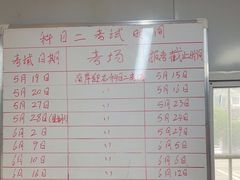 科目二考试时间
考试日期 考场 报告截止时间
5月19日 5月15日
5月20日 〃 5月16日
5月27日 〃 5月23日
5月28日 〃 5月24日
6月2日 〃 5月29日
6月9日 〃 6月5日
6月10日 〃 6月6日
6月16日 〃 6月12日